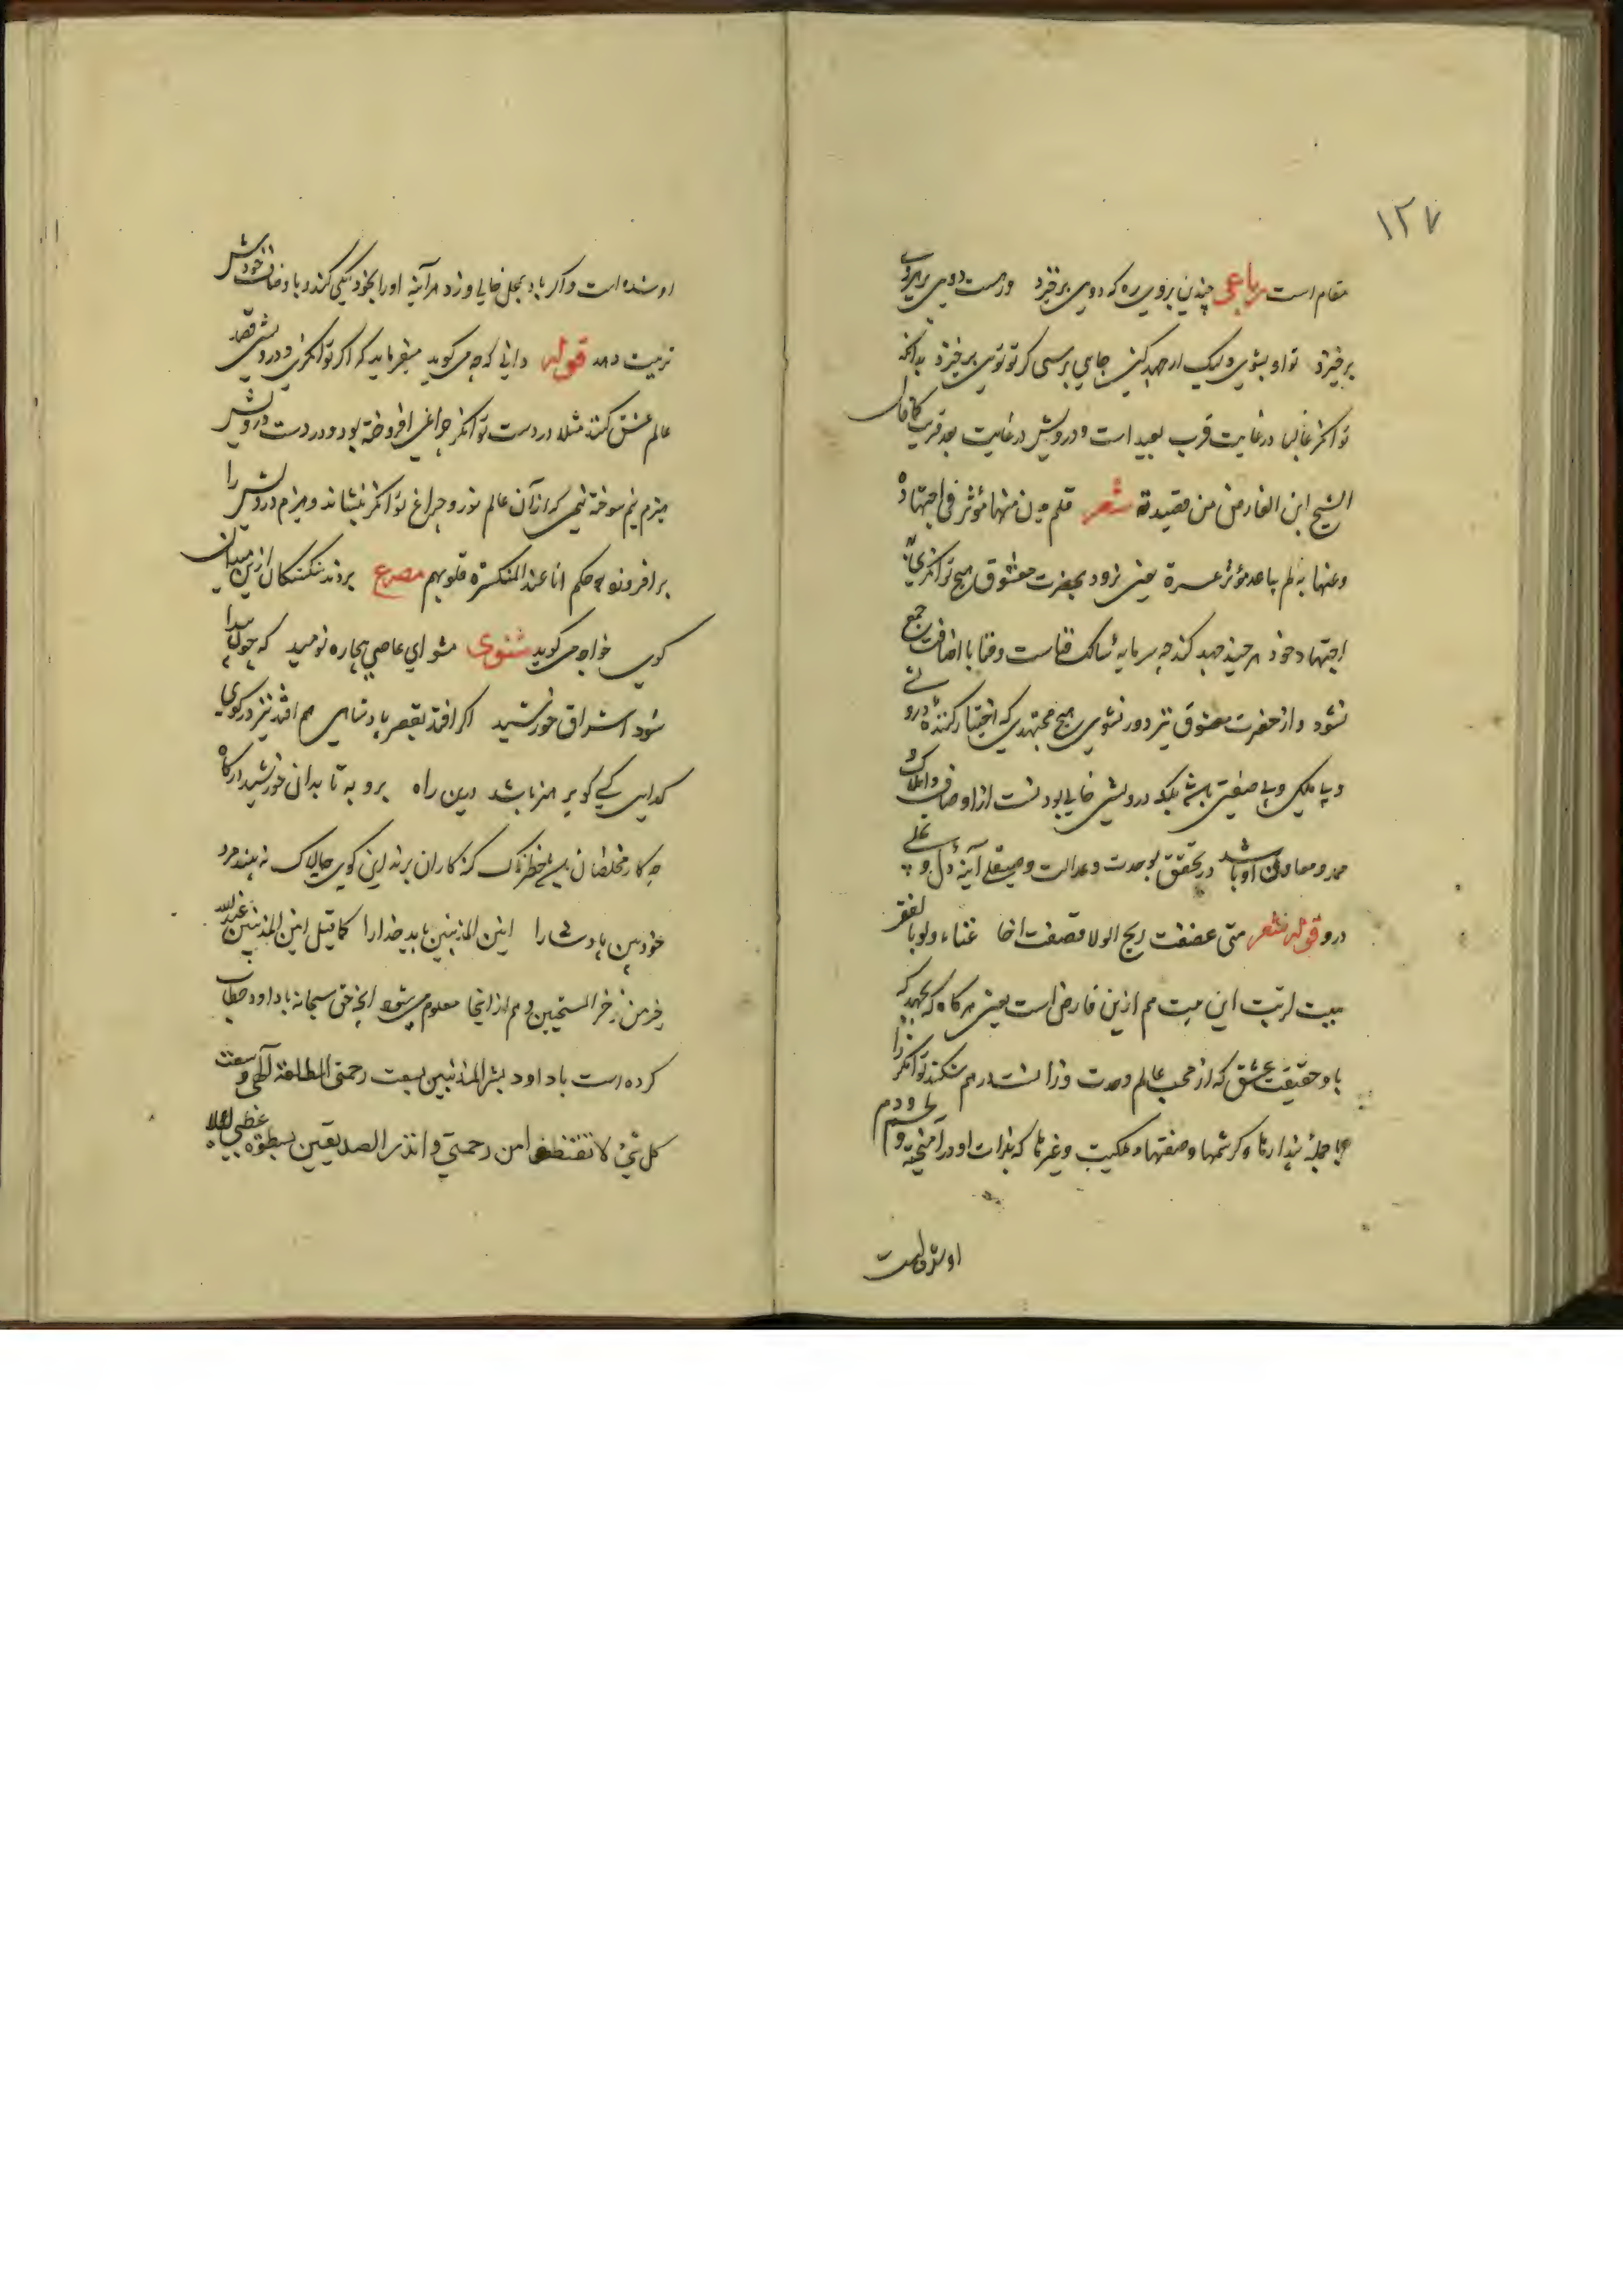 ١٢٧
مقام است رباعی چندین بروی ره که دوی برخیزد ورهست دویی برهروی
برخیزد تو او نشوی ولیک ار جهد کنی جایی برسی کز تو توی برخیزد بدانکه
توانکر غالبا در غایت قرب بعید است و درویش در غایت بعد قریب کما قال
الشیخ ابن الفارض من قصیدة شعر فلم یدن منها مؤثر فی اجتهاده
وعنها به لم ینا مؤثر عسرة یعنی نزود بحضرت معشوق هیچ توانکری
اجتهاد خود هر چند جهد کند چه سرمایه سالک فناست و فنا با اضافت جمع
نشود و از حضرت معشوق نیز دور نشوی هیچ مجتهدی که اختیار کننده درویشی
و بی ملکی و بی صفتی باشد بلکه درویشی خالی بودنست از اوصاف و املاک و
ممد و معاون او باشد در تحقق بوحدت و عدالت و صیقلی آینه دل
درو قوله شعر متی عصفت ریح الولا قصفت اخا غناء ولو بالفقر
هبت لربت این بیت هم ازین فارض است یعنی هرگاه که بجهد که
باد حقیقت عشق که از مهب عالم وحدت وزانست درهم شکند توانکر را
با جمله پندارها و کرشمها و صفتها و ملکیت و غیرها که بذات او درآمیخته و
او شده است
او شده است و اگر باد بمحل خالی وزد هر آینه او را بخود نیکی کند و باوصاف خودش
تربیت دهد قوله دانی که چه می کوید میفرماید که اکر توانکری و درویشی قصد
عالم عشق کنند مثلا در دست توانکر چراغی افروخته بود و در دست درویش
هیزم نیم سوخته نیمی که از آن عالم نوزد چراغ توانکر بنشاند و هیزم درویش را
برافروزد به حکم انا عند المنکسرة قلوبهم مصرع بردند شکستکان ازین میدان
کوی خواجو می کوید مثنوی مشو ای عاصی بیچاره نومید که چون پیدا
شود اشراق خورشید اکر افتد بقصر پادشاهی هم افتد نیز در کوی
کدایی کسی کو بر هنر باشد درین راه برو به تابد آن خورشید درکاه
چو کار مخلصان بس خطرناک کنه کاران برند این کوی چالاک نه بیند مرد
خودبین پادشا را انین المذنبین باید خدا را کما قیل انین المذنبین عند الله
خیر من زجر المسبحین و هم از اینجا معلوم می شود آنچه حق سبحانه با داود خطاب
کرده است یا داود بشر المذنبین بسعت رحمتی المطلقة التی وسعت
کل شیء لا تقنطوا من رحمتی و انذر الصدیقین بسطوة